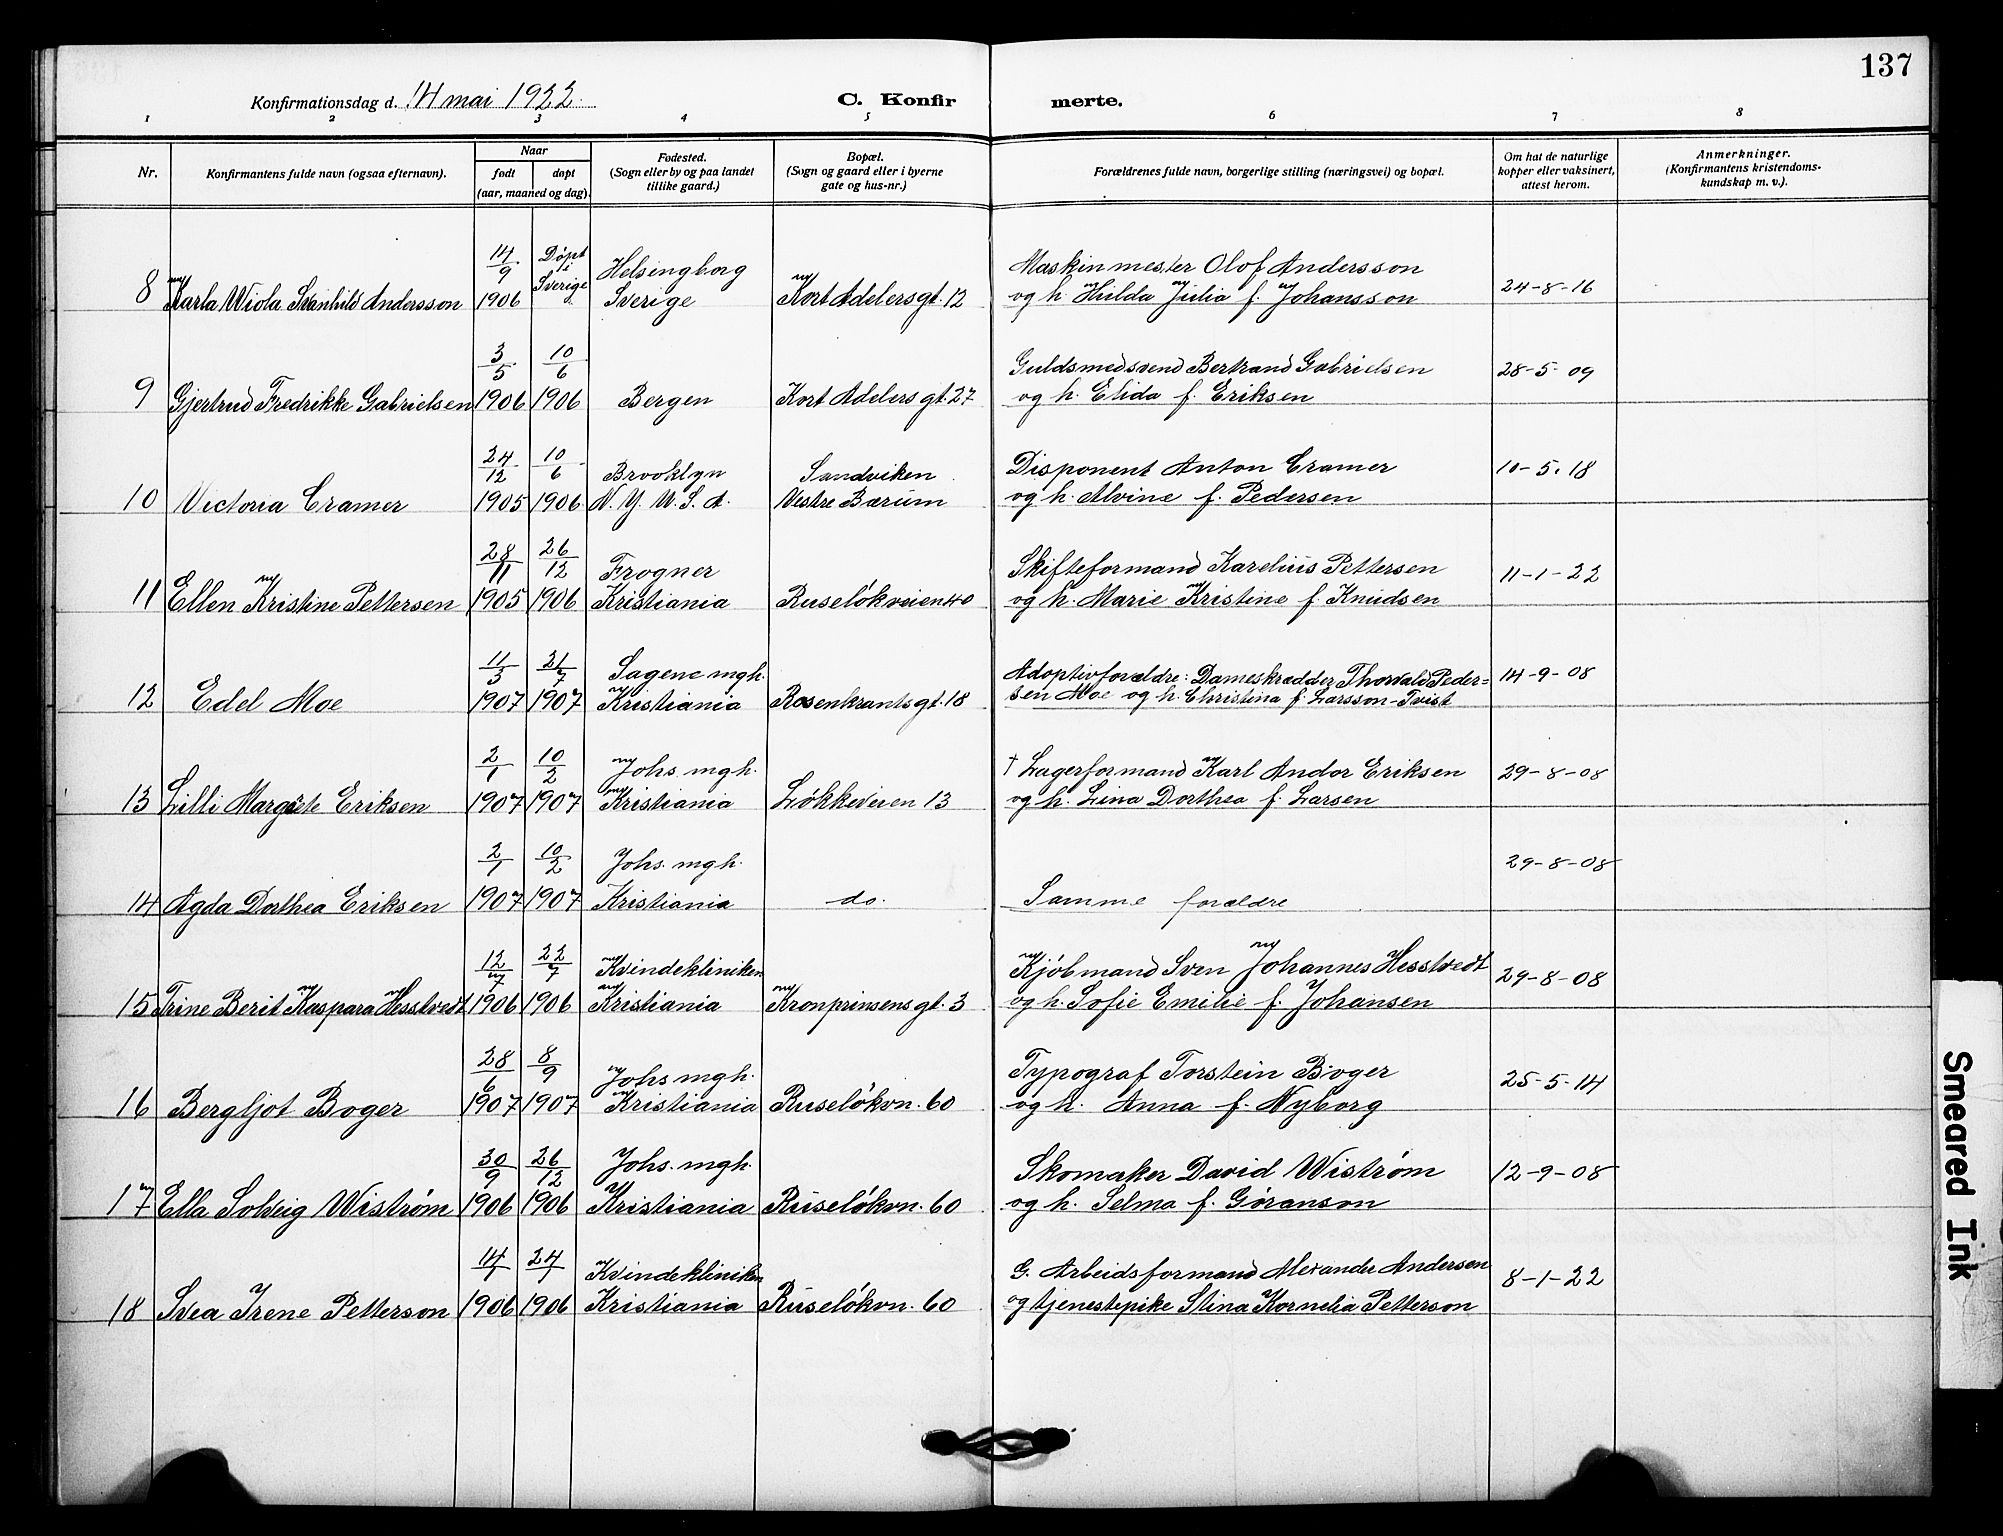 137
Konfirmationsdag d. 14 mai 1922.
C. Konfirmerte.
1 2 3 4 5 6 7 8
Nr.
Konfirmantens fulde navn (ogsaa efternavn).
Naar
født
døpt
(aar, maaned og dag).
Fødested.
(Sogn eller by og paa landet
tillike gaard.)
Bopæl.
(Sogn og gaard eller i byerne
gate og hus-nr.)
Forældrenes fulde navn, borgerlige stilling (næringsvei) og bopæl.
Om hat de naturlige
kopper eller vaksinert,
attest herom.
Anmerkninger.
(Konfirmantens kristendoms-
kundskap m. v.).
14/9 Døpt i Helsingborg Maskinmester Olof Andersson
8 Karla Wiola Svanhild Andersson 1906 Sverige Sverige Kort Adelersgt. 12 og h. Hilda Julia f. Johansson 24-8-16
3/5 10/6 Guldsmedsvend Bertrand Gabrielsen 28-5-09
9 Gjertrud Fredrikke Gabrielsen 1906 1906 Bergen Kort Adelersgt. 27 og h. Elida f. Eriksen
24/12 10/6 Brooklyn Sandviken Disponent Anton Cramer 10-5-18
10 Victoria Cramer 1905 1906 N. Y. U. S. A. Vestre Bærum og h. Alvine f. Pedersen
28/11 26/12 Frogner Skifteformand Karelius Pettersen 11-1-22
11 Ellen Kristine Pettersen 1905 1906 Kristiania Ruseløkveien 40 og h. Marie Kristine f. Knudsen
11/3 21/7 Sagene mgh. Adoptivforældre: Dameskrædder Thorvald Peder= 14-9-08
12 Edel Moe 1907 1907 Kristiania Rosenkrantsgt. 18 sen Moe og h. Christina f. Larsson-Tvist
2/1 10/2 Johs. mgh. † Lagerformand Karl Andor Eriksen 29-8-08
13 Lilli Margrete Eriksen 1907 1907 Kristiania Løkkeveien 13 og h. Lina Dorthea f. Larsen
2/1 10/2 Johs. mgh. 29-8-08
14 Agda Dorthea Eriksen 1907 1907 Kristiania do. Samme forældre
12/7 22/7 Kvindekliniken Kjøbmand Sven Johannes Hesstvedt 29-8-08
15 Trine Berit Kaspara Hesstvedt 1906 1906 Kristiania Kronprinsensgt. 3 og h. Sofie Emilie f. Johansen
28/6 8/9 Johs mgh. Typograf Torstein Boger 25-5-14
16 Bergljot Boger 1907 1907 Kristiania Ruseløkvn. 60 og h. Anna f. Nyborg
30/9 26/12 Johs. mgh. Skomaker David Wistrøm 12-9-08
17 Ella Solveig Wistrøm 1906 1906 Kristiania Ruseløkvn. 60 og h. Selma f. Gøranson
14/7 24/7 Kvindekliniken G. Arbeidsformand Alexander Andersen 8-1-22
18 Svea Irene Petterson 1906 1906 Kristiania Ruseløkvn. 60 og tjenestepike Stina Kornelia Petterson
Smeared Ink